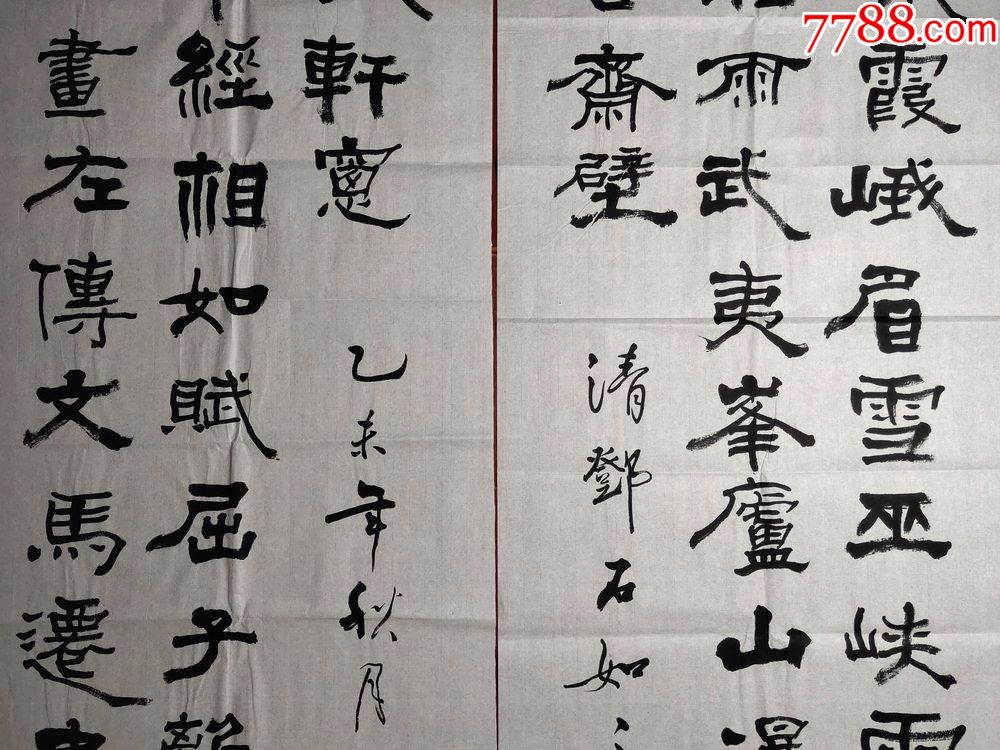 7788.com
霞峨眉雪巫峡
雨武夷峯廬山
齋壁
清鄧石如
畫左傳文馬遷
經相如賦屈子
軒窻
乙未年秋月